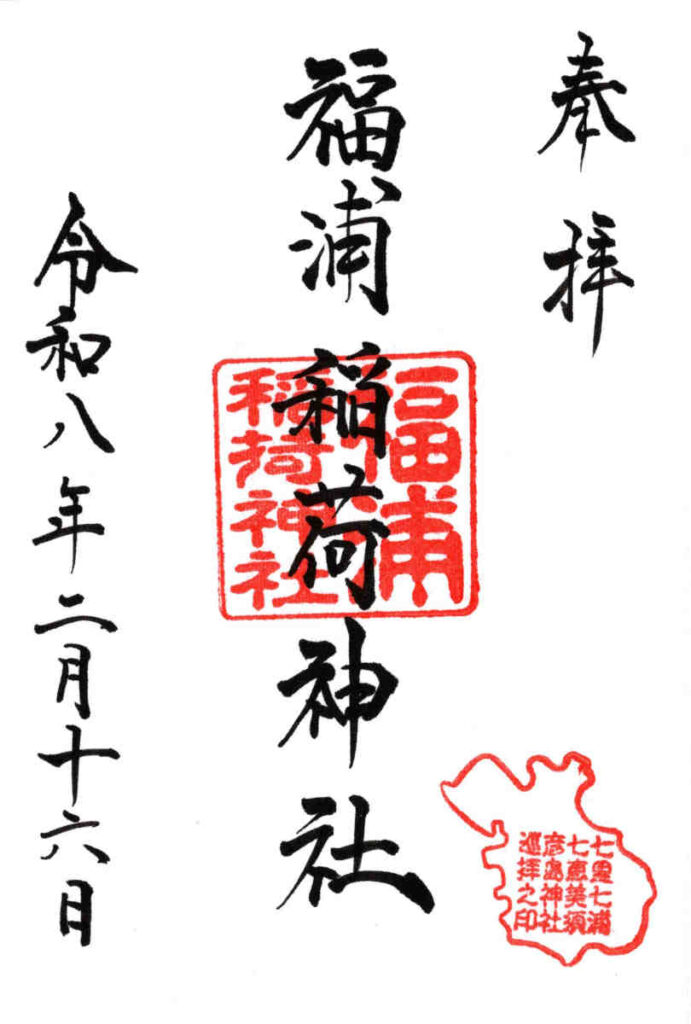 奉拝
福浦稲荷神社
令和八年二月十六日
福浦
稲荷神社
七里七浦
七恵美須
彦島神社
巡拝之印